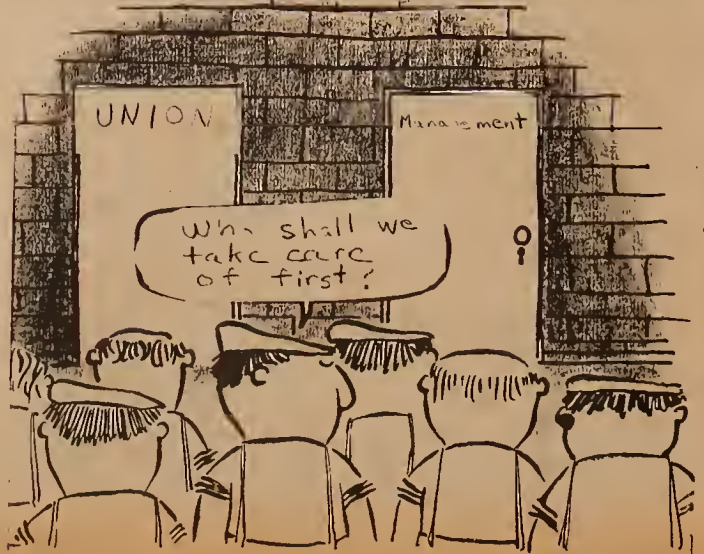 UNION
Management
Who shall we
take care
of first?